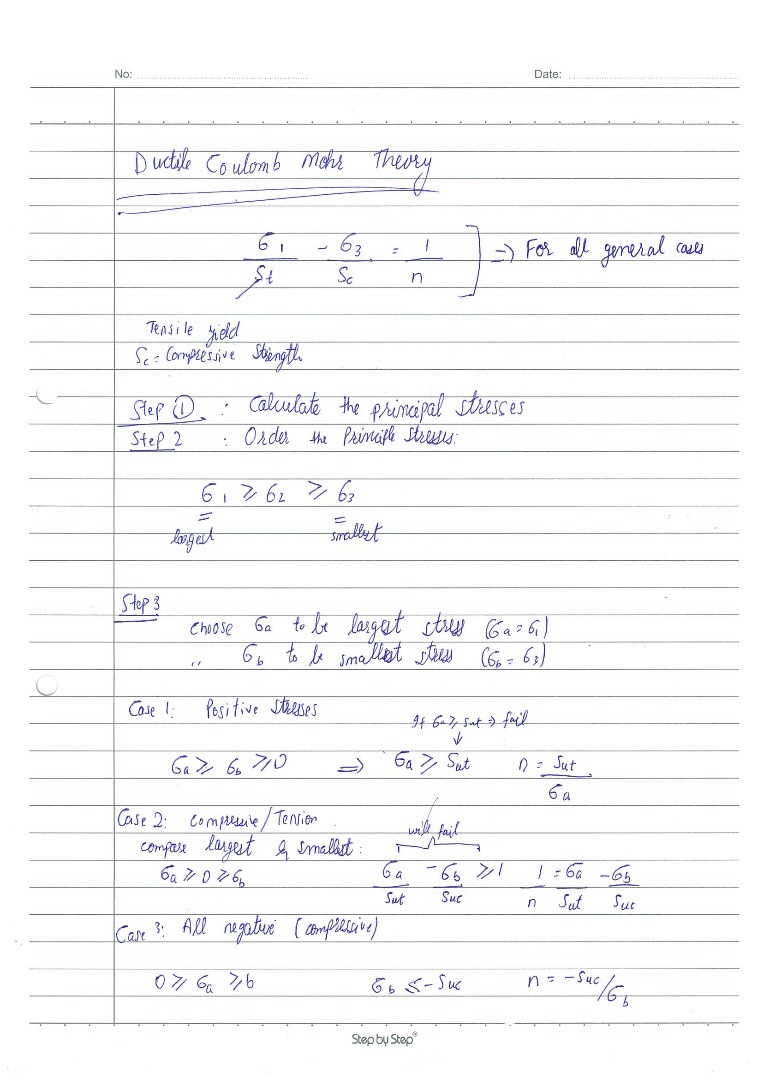 No: Date:
Ductile Coulomb Mohr Theory
σ1/St - σ3/Sc = 1/n ] ⇒ For all general cases
Tensile yield
Sc = Compressive Strength
Step ① : Calculate the principal stresses
Step 2 : Order the Principle Stresses:
σ1 ≥ σ2 ≥ σ3
largest smallest
Step 3
choose σa to be largest stress (σa = σ1)
,, σb to be smallest stress (σb = σ3)
Case 1: Positive Stresses
If σa ≥ Sut ⇒ fail
σa ≥ σb ≥ 0 ⇒ σa ≥ Sut n = Sut/σa
Case 2: compressive/Tension
will fail
compare largest & smallest:
σa ≥ 0 ≥ σb σa/Sut - σb/Suc ≥ 1 1/n = σa/Sut - σb/Suc
Case 3: All negative (compressive)
0 ≥ σa ≥ b σb ≤ -Suc n = -Suc/σb
Step by Step®